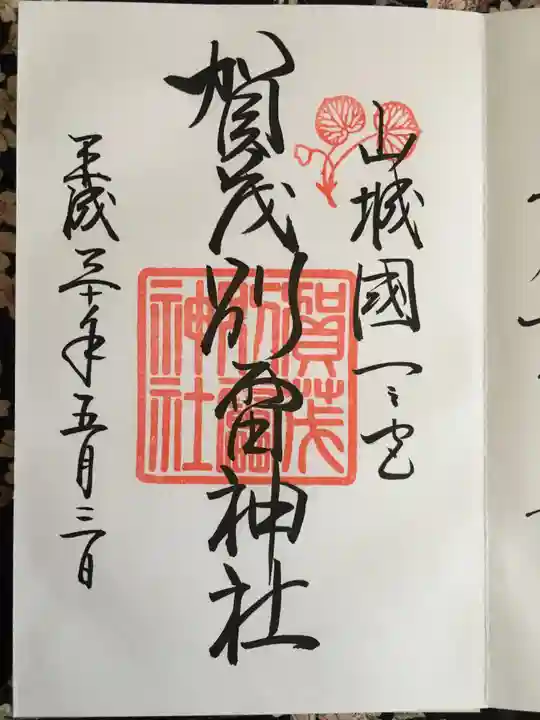 山城國一之宮
賀茂別雷神社
賀茂
別雷
神社
平成三十年五月三日